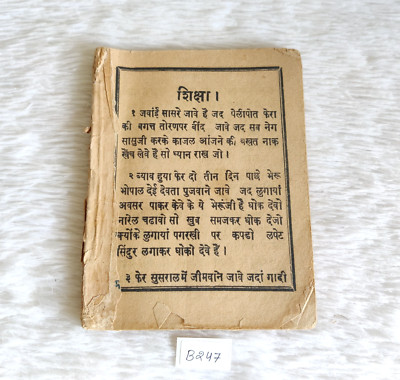 शिक्षा ।
१ जवांई सासरे जावे हैं जद पेलीपोत फेरा
की बगत्त तोरणपर बींद जावे जद सब नेग
सासुजी करके काजल आंजने की बखत नाक
खेंच लेवे हैं सो ध्यान राख जो ।
२ ब्याव हुया फेर दो तीन दिन पाछे भेरू
भोपाल देई देवता पुजवाने जावे जद लुगायां
अवसर पाकर केवे के ये भेरूंजी हैं धोक देवो
नारेल चढावो सो खुब समजकर धोक देजो
क्योंके लुगायां पगरखी पर कपडो लपेट
सिंदुर लगाकर धोको देवे हैं ।
३ फेर सुसराल में जीमवनि जावे जदां गाबी
B247